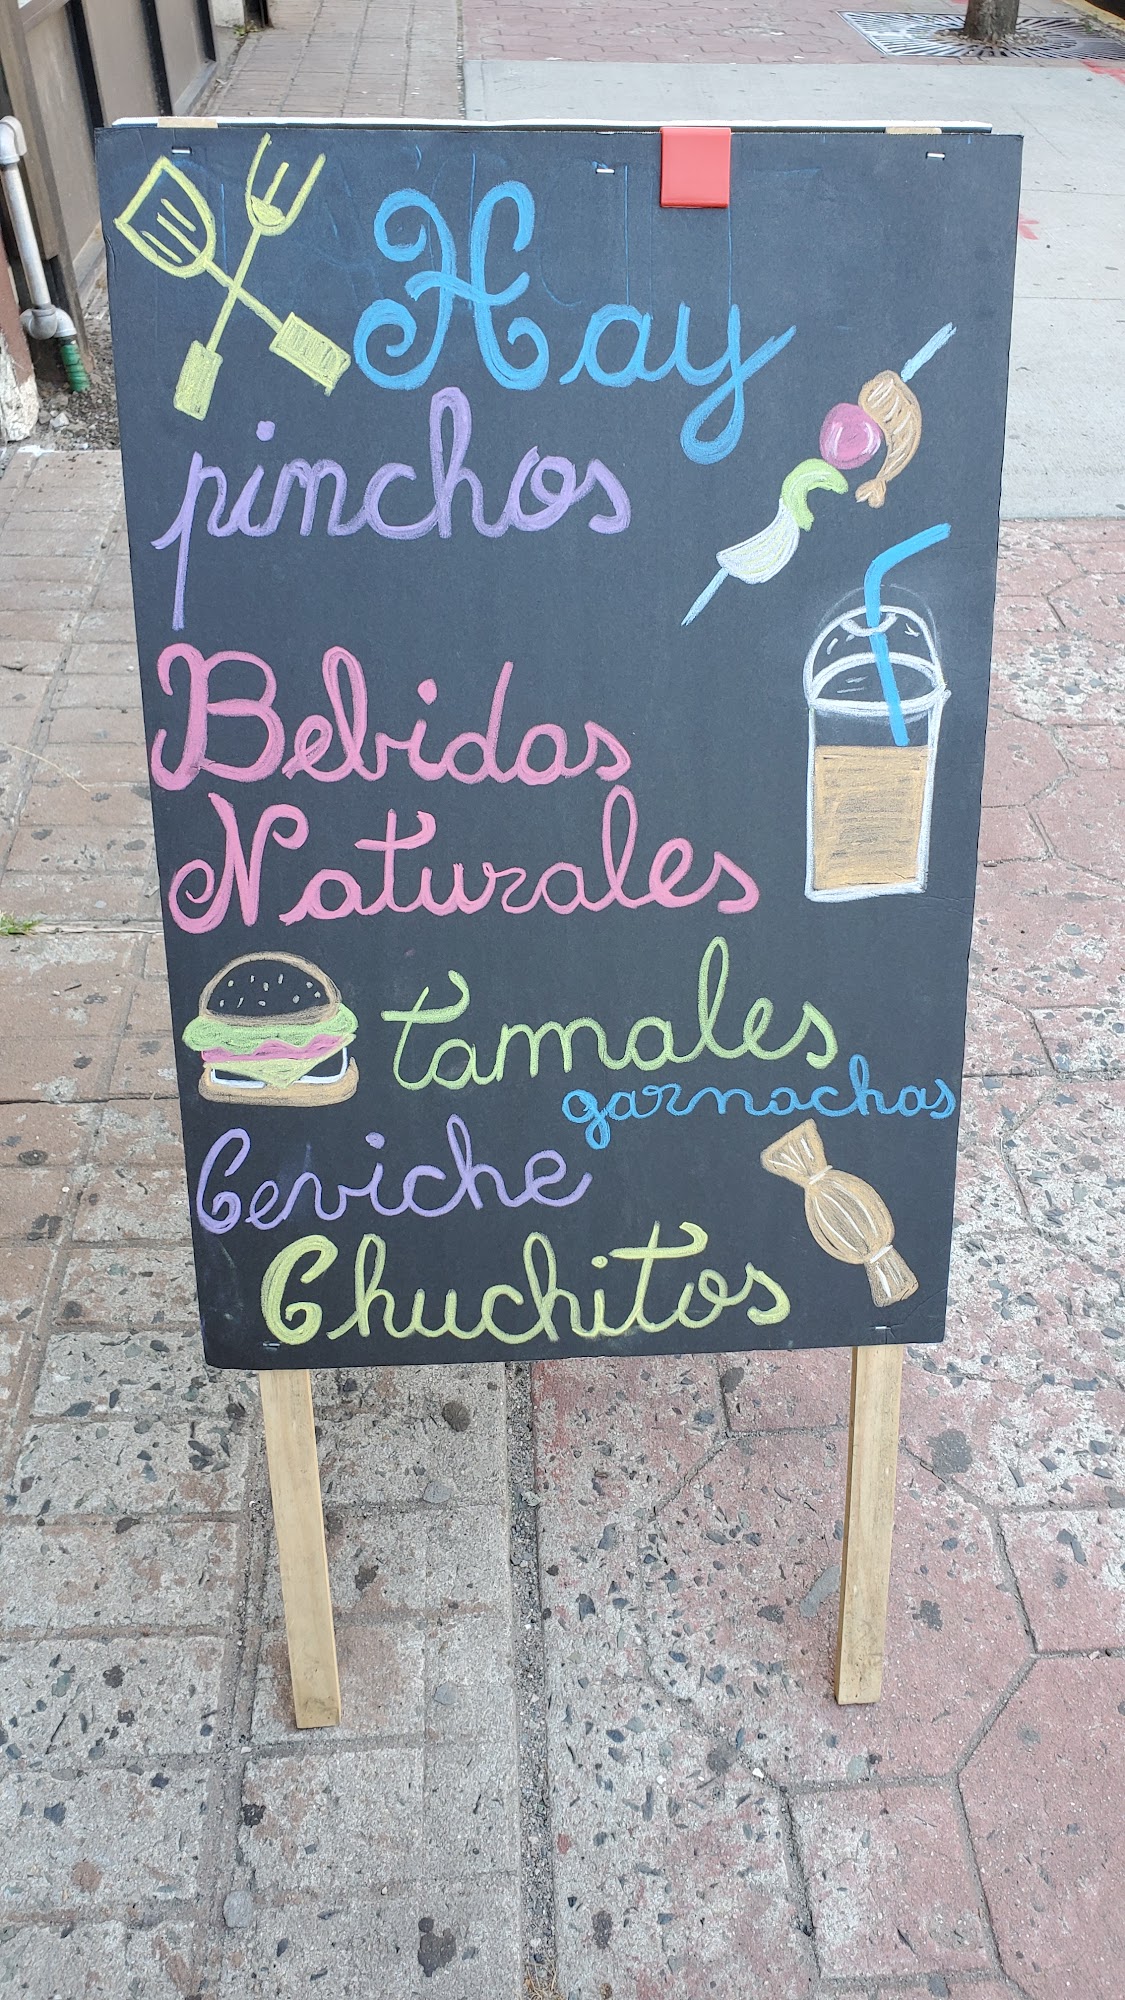 Hay
pinchos
Bebidas
Naturales
tamales
garnachas
Ceviche
Chuchitos